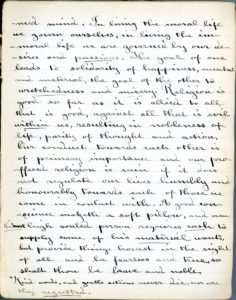 nced mind. In living the moral life
we govern ourselves, in living the im-
-moral life we are governed by our de-
sires and passions. The goal of one
leads to solidarity of happiness, mental
and material, the goal of the other to
wretchedness and misery. Religion is
good so far as it is allied to all
that is good, against all that is evil
within us, resulting in nobleness of
life, purity of thought and action,
Our conduct towards each other is
of primary importance and our pro-
ffered religion is ruin if it does
not regulate our lives humbly and
honourably towards each of those we
come in contact with. A good con-
-science maketh a soft pillow, and
the most high souled person requires cash to
supply some of his material wants,
but provide things honest in the sight
of all and be fearless and true, so
shalt thou be brave and noble.
Kind words, and gentle actions never die, nor are
they regretted.